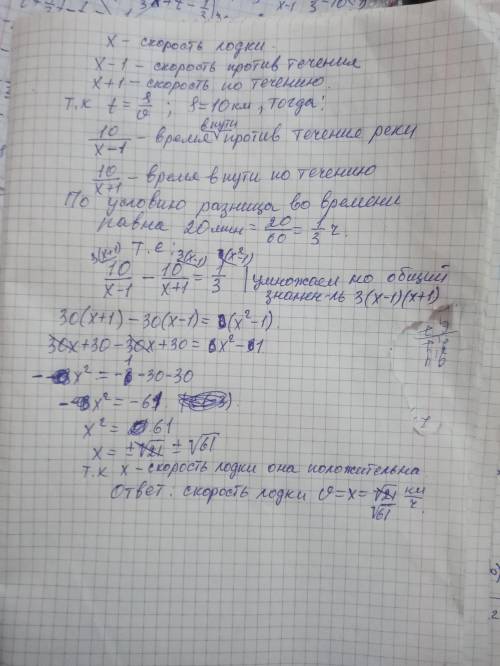 x - скорость лодки.
x-1 - скорость против течения
x+1 - скорость по течению.
т.к t = S/υ ; S=10км, тогда:
10/(x-1) - время в пути против течение реки
10/(x+1) - время в пути по течению
По условию разница во времени
равна 20мин = 20/60 = 1/3 ч.
т.е:
3(x+1) 3(x-1) (x²-1)
10/(x-1) - 10/(x+1) = 1/3 | умножаем на общий
знамен-ль 3(x-1)(x+1)
30(x+1) - 30(x-1) = (x²-1).
30x+30-30x+30 = x²-1
-x² = -1-30-30
-x² = -61.
x² = 61
x = ±√21 ±√61
т.к x - скорость лодки она положительна
Ответ: скорость лодки υ=x= √21 км/ч.
√61